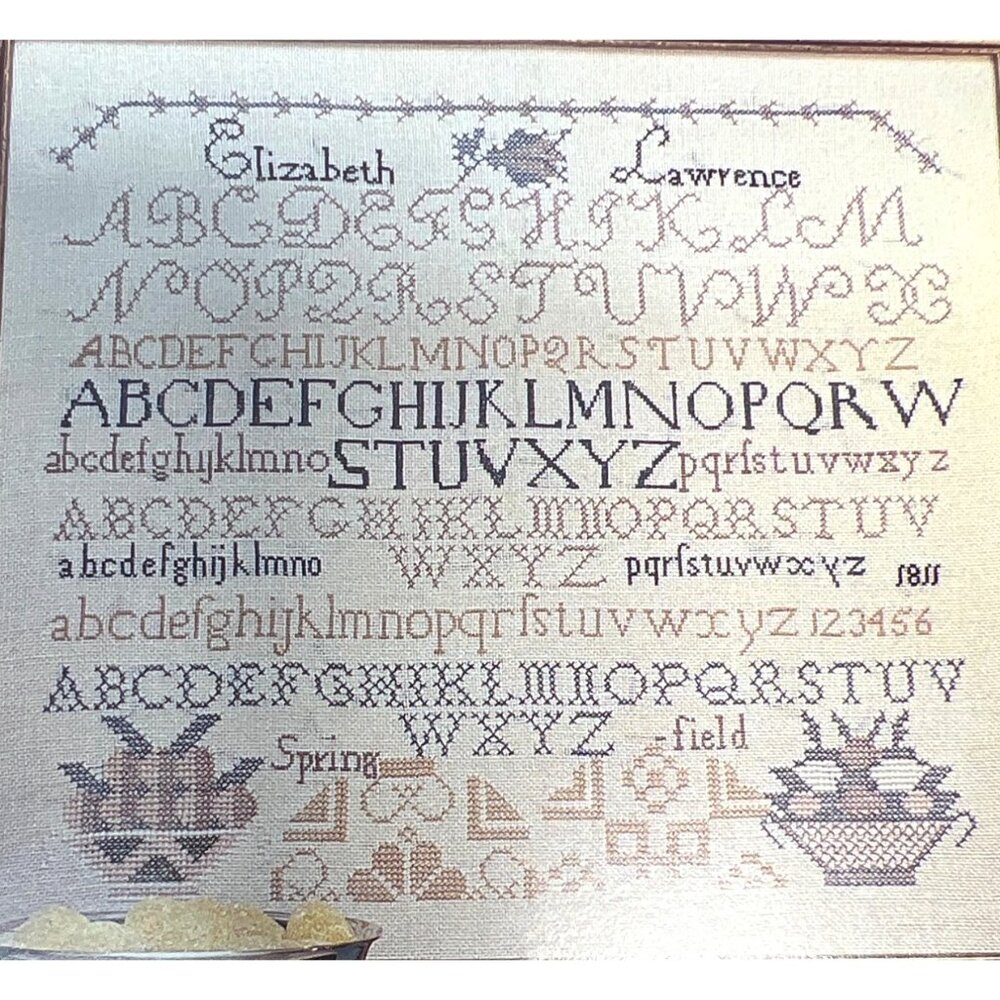 Elizabeth Lawrence
ABCDEFGHIKLM
NOPQRSTUVWX
ABCDEFGHIJKLMNOPQRSTUVWXYZ
ABCDEFGHIJKLMNOPQRW
abcdefghijklmno STUVXYZ pqrſstuvwxyz
ABCDEFGHIKLMNOPQRSTUV
abcdefghijklmno WXYZ pqrſstuvwxyz 1811
abcdefghijklmnopqrſstuvwxyz 123456
ABCDEFGHIKLMNOPQRSTUV
Spring WXYZ -field